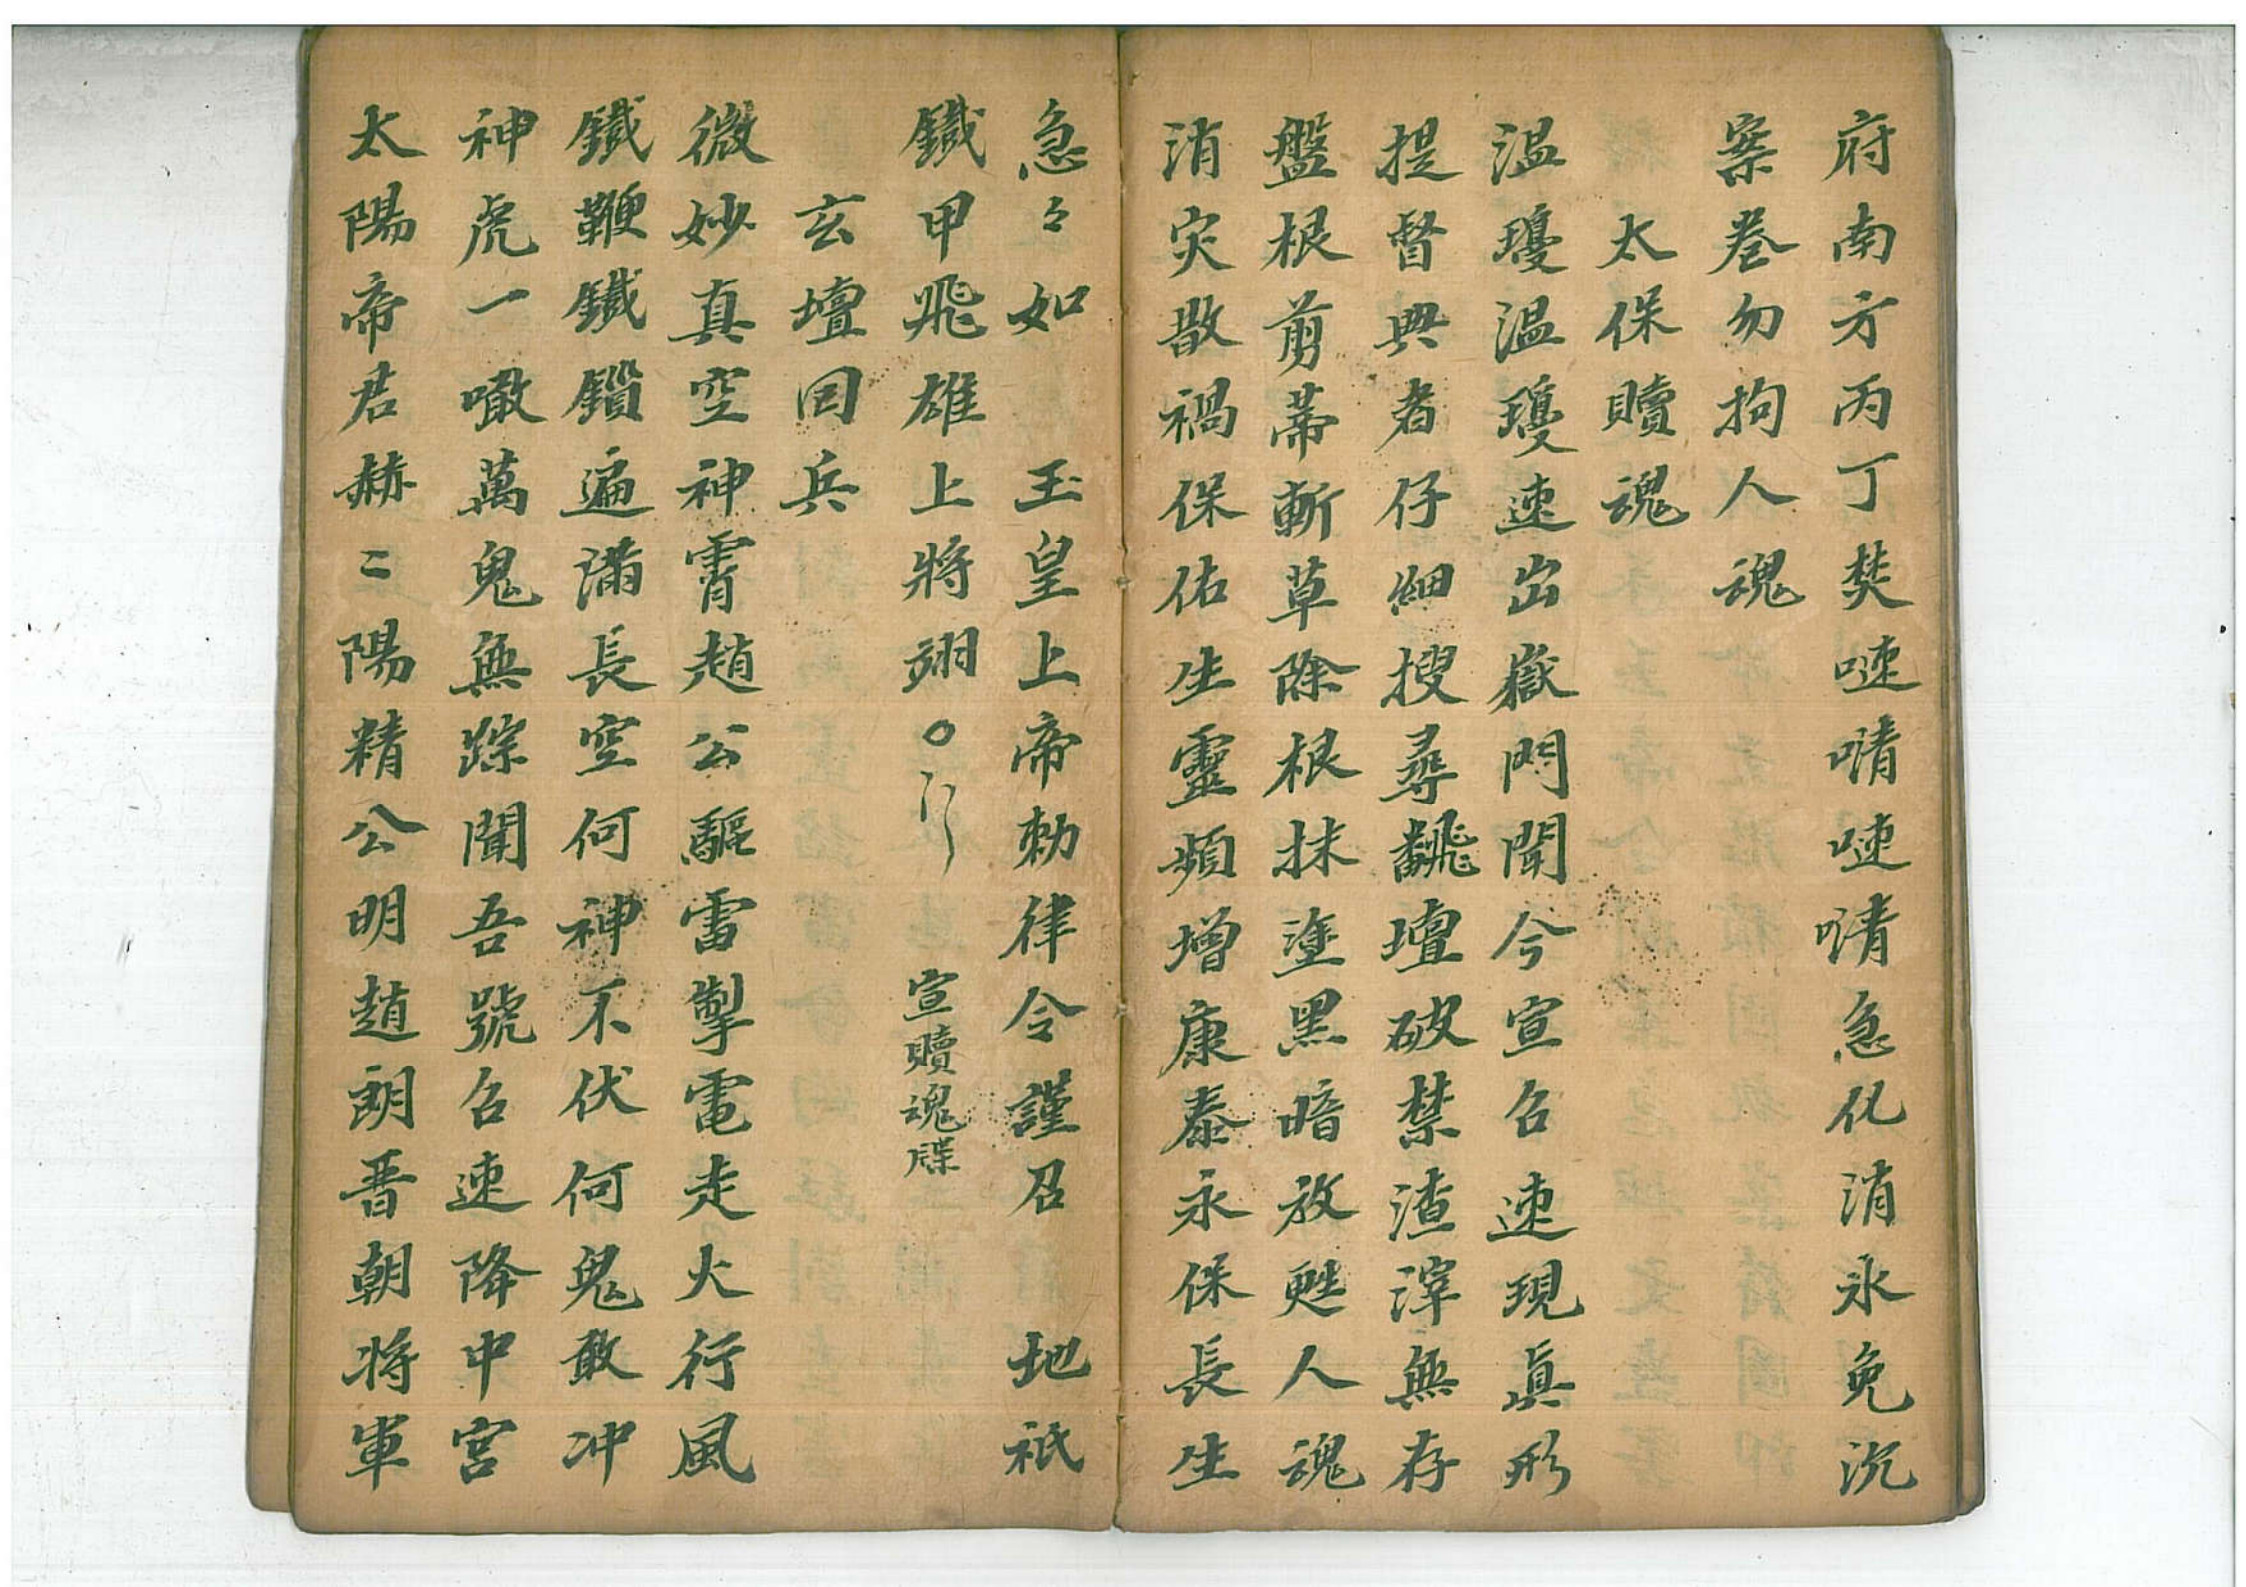 府南方丙丁焚㗭啨㗭啨急化消永免沉
案卷勿拘人魂
太保贖魂
溫瓊溫瓊速出嶽門聞今宣召速現眞形
提督典者仔細搜尋飜壇破禁渣滓無存
盤根剪蒂斬草除根抹塗黑暗放甦人魂
消灾散禍保佑生靈頻增康泰永保長生
急々如 玉皇上帝勅律令謹召 地祇
鐵甲飛雄上將翊○ 宣贖魂牒
玄壇囙兵
微妙真空神霄趙公驅雷掣電走火行風
鐵鞭鐵鎖遍滿長空何神不伏何鬼敢冲
神虎一噉萬鬼無踪聞吾號召速降中宮
太陽帝君赫二陽精公明趙朗晋朝将軍